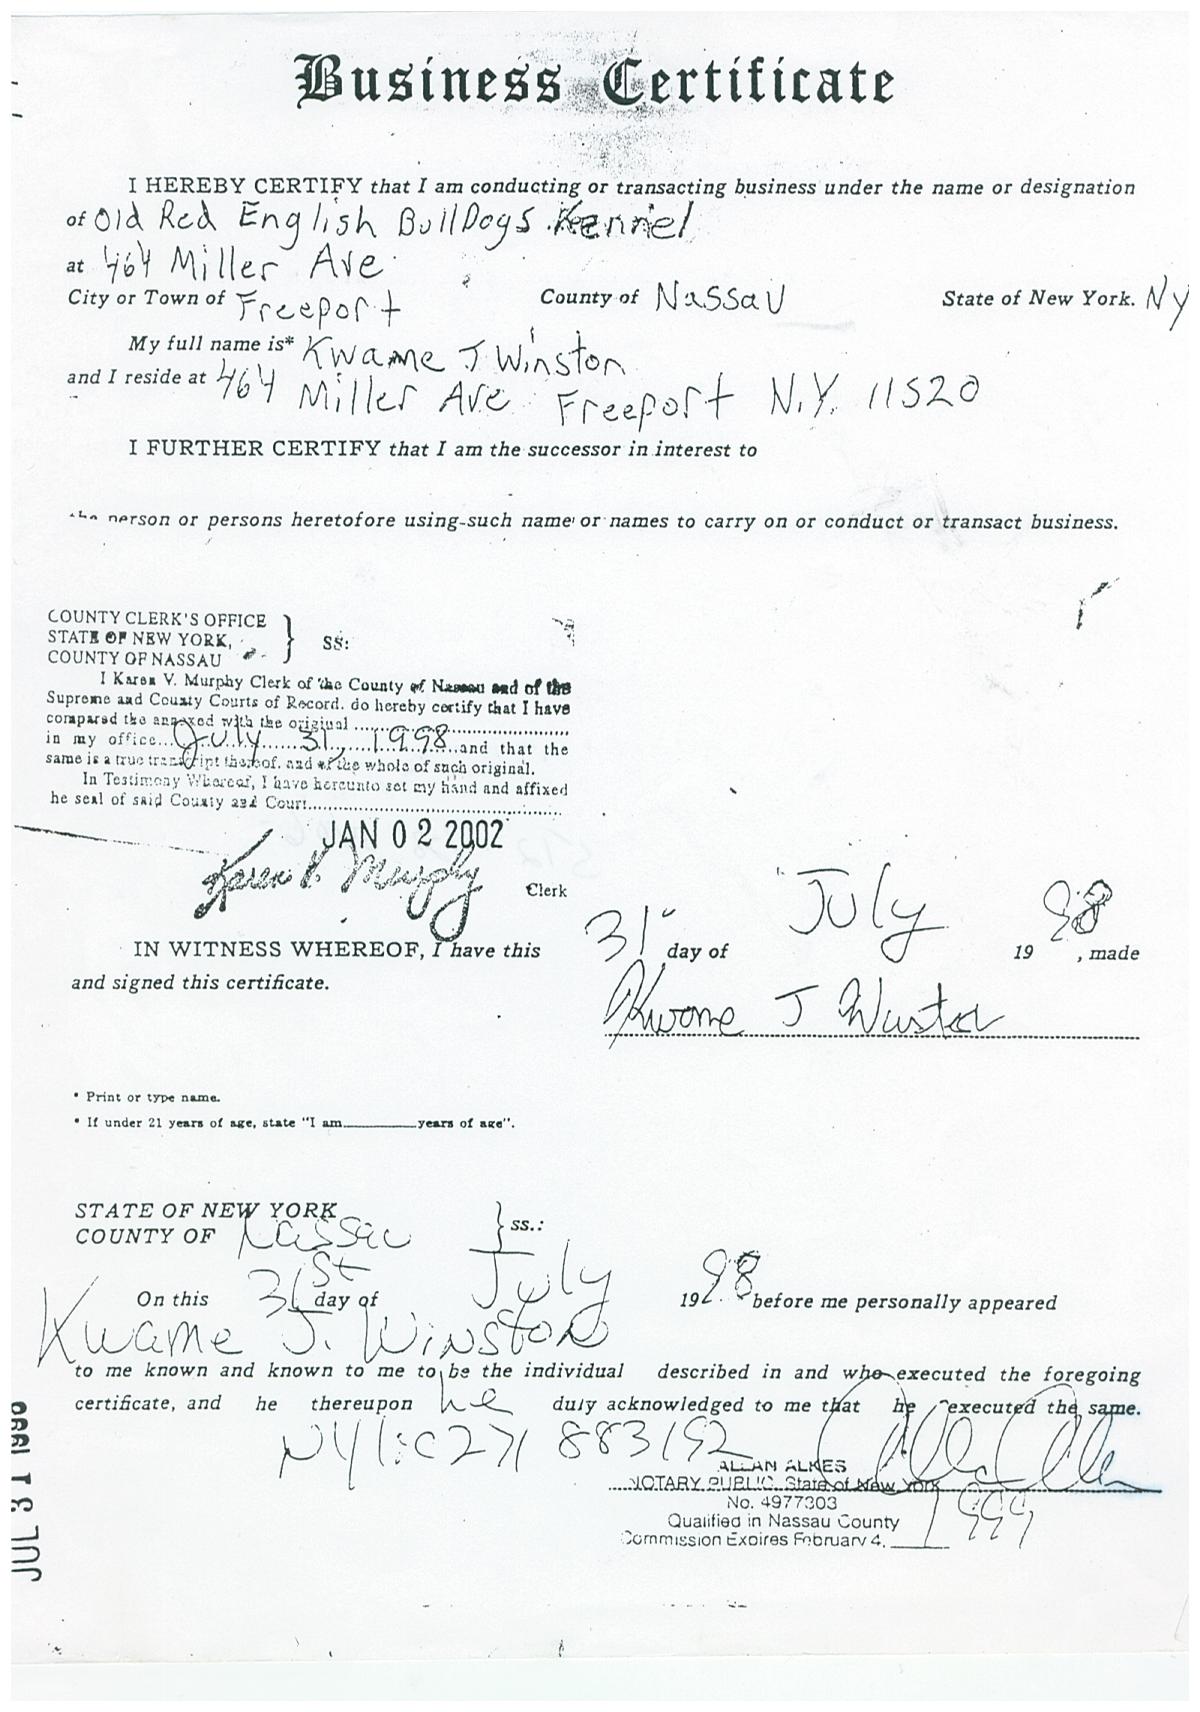 Business Certificate
I HEREBY CERTIFY that I am conducting or transacting business under the name or designation
of Old Red English BullDogs Kennel
at 464 Miller Ave
City or Town of Freeport County of Nassau State of New York. NY
My full name is* Kwame J Winston
and I reside at 464 Miller Ave Freeport N.Y. 11520
I FURTHER CERTIFY that I am the successor in interest to
the person or persons heretofore using such name or names to carry on or conduct or transact business.
COUNTY CLERK'S OFFICE
STATE OF NEW YORK, } SS:
COUNTY OF NASSAU
I Karen V. Murphy Clerk of the County of Nassau and of the
Supreme and County Courts of Record. do hereby certify that I have
compared the annexed with the original
in my office July 31, 1998 and that the
same is a true transcript thereof. and of the whole of such original.
In Testimony Whereof, I have hereunto set my hand and affixed
he seal of said County and Court
JAN 02 2002
Karen V. Murphy Clerk
IN WITNESS WHEREOF, I have this 31 day of July 19 98, made
and signed this certificate.
Kwame J Winston
* Print or type name.
* If under 21 years of age, state "I am______years of age".
STATE OF NEW YORK
COUNTY OF Nassau } ss.:
On this 31st day of July 19 98 before me personally appeared
Kwame J. Winston
to me known and known to me to be the individual described in and who executed the foregoing
certificate, and he thereupon he duly acknowledged to me that he executed the same.
883192
ALLAN ALKES
NOTARY PUBLIC, State of New York
No. 4977303
Qualified in Nassau County
Commission Expires February 4, 1999
JUL 31